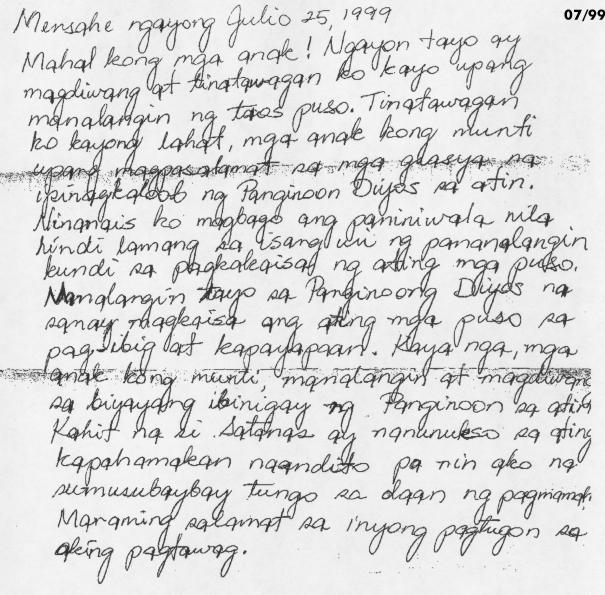 Mensahe ngayong Julio 25, 1999
07/99
Mahal kong mga anak! Ngayon tayo ay
magdiwang at tinatawagan ko kayo upang
manalangin ng taos puso. Tinatawagan
ko kayong lahat, mga anak kong munti
upang magpasalamat sa mga grasya na
ipinagkaloob ng Panginoon Diyos sa atin.
Ninanais ko magbago ang paniniwala nila
hindi lamang sa isang uri ng pananalangin
kundi sa pagkakaisa ng ating mga puso.
Manalangin tayo sa Panginoong Diyos na
sanay magkaisa ang ating mga puso sa
pag-ibig at kapayapaan. Kaya nga, mga
anak kong munti, manalangin at magdiwang
sa biyayang ibinigay ng Panginoon sa atin
Kahit na si Satanas ay nanunukso sa ating
kapahamakan naandito pa rin ako na
sumusubaybay tungo sa daan ng
Maraming salamat sa inyong pagtugon sa
aking pagtawag.